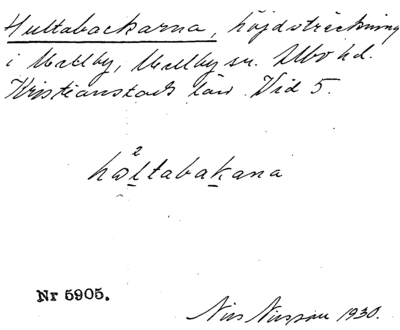 Hultabackarna, höjdsträckning
i Mellby, Mellby sn. Albo hd.
Kristianstads län. Vid 5.
hωltabakana
Nr 5905.
Nils Nilsson 1930.